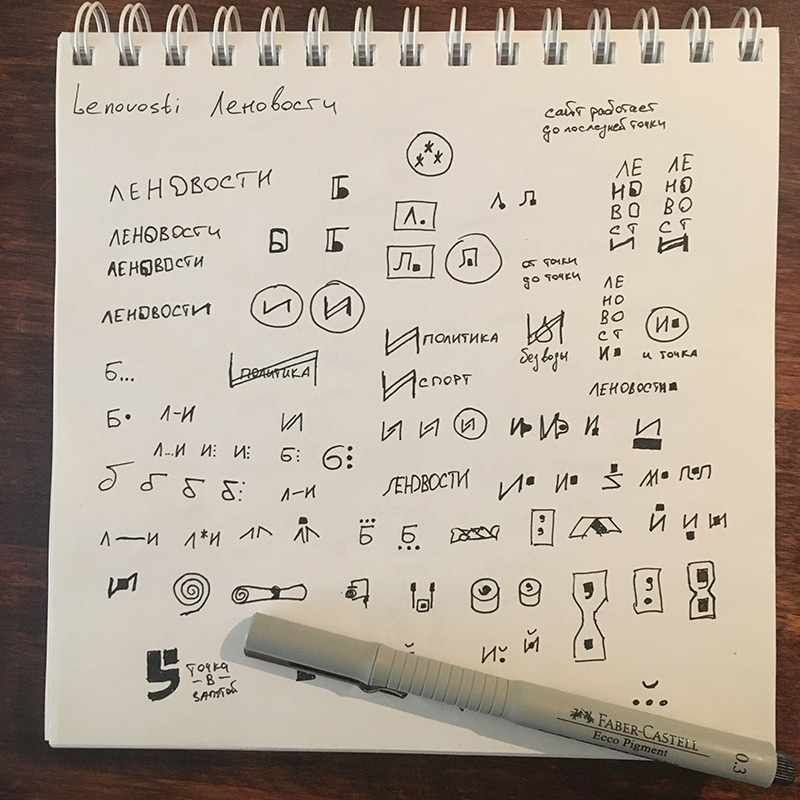 Lenovosti Леновости
сайт работает
до последней точки
ЛЕНОВОСТИ
Б
ЛЕ ЛЕ
НО НО
ВО ВО
СТ СТ
И И
Л.
Л П
ЛЕНОВОСТИ
Б Б
ЛЕНОВОСТИ
Л. Л
от точки
до точки
ЛЕНОВОСТИ
И И
ЛЕ
НО
ВО
СТ
И
И ПОЛИТИКА
без воды
И
и точка
Б...
ПОЛИТИКА
И СПОРТ
ЛЕНОВОСТИ
Б• Л-И
И
И И И И И И И
Л...И И: И:
Б: Б:
б б б б:
Л-И
ЛЕНОВОСТИ
И И
Л—И Л*И
Б Б
Й И
И
И Й
5 ТОЧКА
-В-
ЗАПЯТОЙ
FABER-CASTELL
Ecco Pigment
0.3